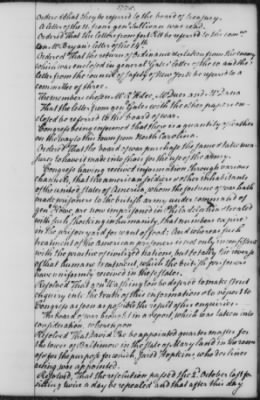 1778.
Ordered that they be referred to the board of treasury.
A letter of the 11 from gen. Sullivan was read.
Ordered That the letter from be referred to the com
Gen. McDougall letter of the 14th
Ordered That the return of Ordnance &c. taken from the enemy
which was enclosed in general Gates' letter of the 10 and the
letter from the council of safety of New York be referred to a
committee of three.
The members chosen Mr. Duer and Mr. Dana
That the letter from gen. Gates with the other papers en-
closed be referred to the board of war.
Congress being informed that there is a quantity of leather
on the way to this town from North Carolina.
Ordered That the board of war purchase the same & take mea-
sures to have it made into shoes for the use of the army.
Congress having received information through various
channels, that the american soldiers & other inhabitants
of the united states of America, whom the fortune of war hath
made prisoners to the british army under command of
gen. Howe are now imprisoned in Philadelphia & treated
with such shocking inhumanity, that numbers expire
in the prison yard for want of food: And whereas such
treatment of the American prisoners is not only inconsistent
with the practice of civilized nations, but totally the reverse
of that humane treatment which the british prisoners
have uniformly received in these states.
Resolved That gen. Washington be directed to make strict
enquiry into the truth of this information & to report to
Congress as soon as possible the result of his enquiries.
The board of war brought in a report, which was taken into
consideration, whereupon
Resolved That David be appointed quarter master for
the town of Baltimore in the state of Maryland in the room
of for the purpose for which Jarrd Hopkins, who declines
acting was appointed.
Resolved, That the resolution passed the 2d October last for
sitting twice a day be repealed and that after this day